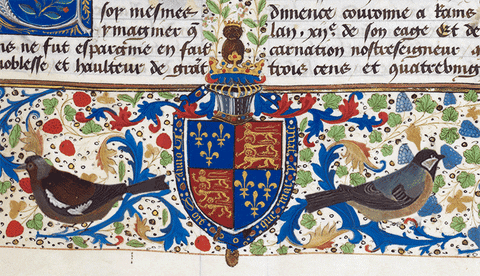 sor mesmes
ymaginer q
ne fut espargnie en fait
noblesse et haulteur de
dimence couronne a Rains
lan . xiiᵉ. de son eage Et de
carnation nostreseigneur
trois cens et quatrebing
honi soit qui mal y pense